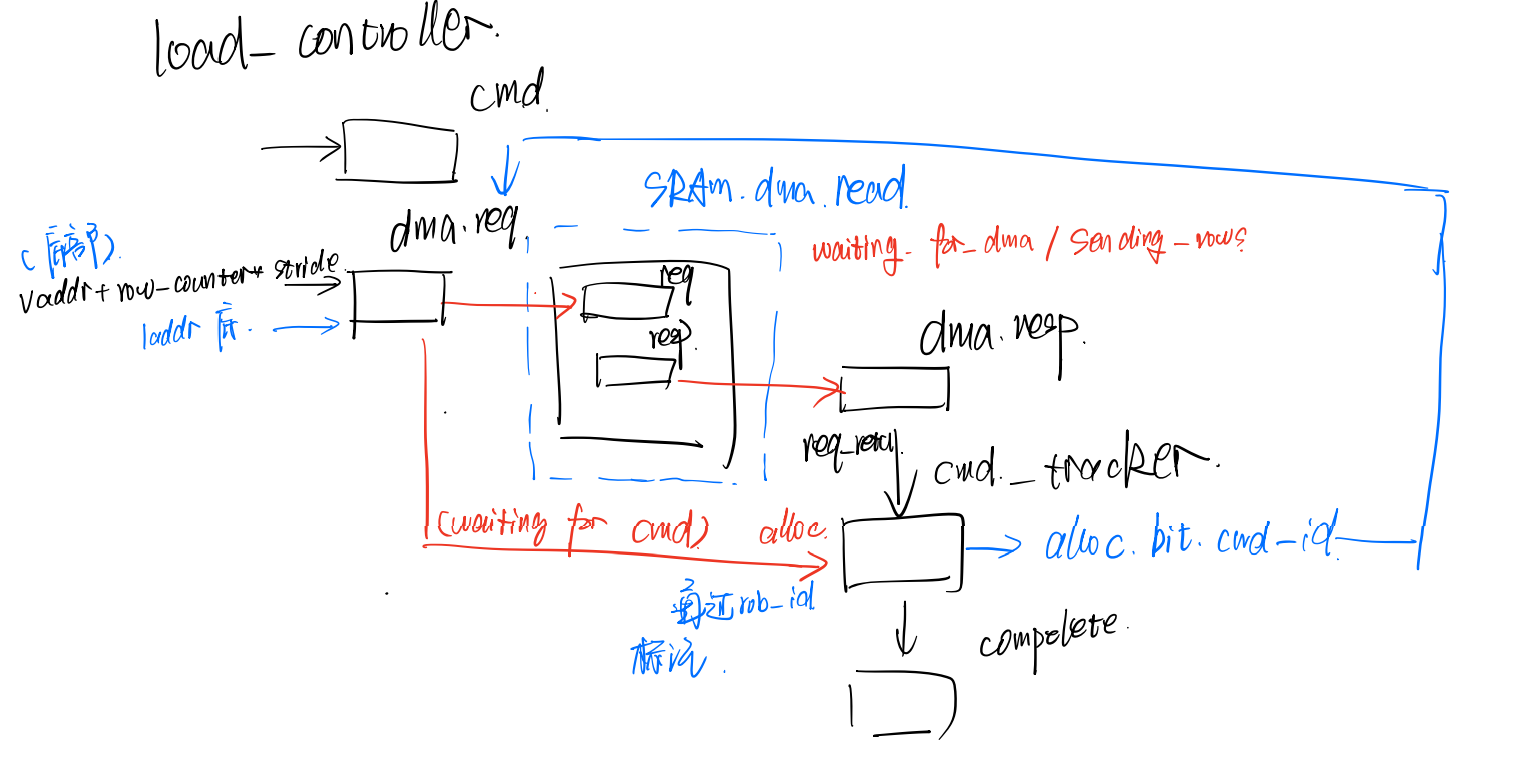 load_controller.
cmd.
SRAm.dma.read.
dma.req.
waiting_for_dma / sending_rows
vaddr+row_counter* stride.
laddr
req
resp.
dma.resp.
cmd._tracker.
(waiting for cmd) alloc.
alloc.bit.cmd_id
通过rob_id
标识.
compelete.